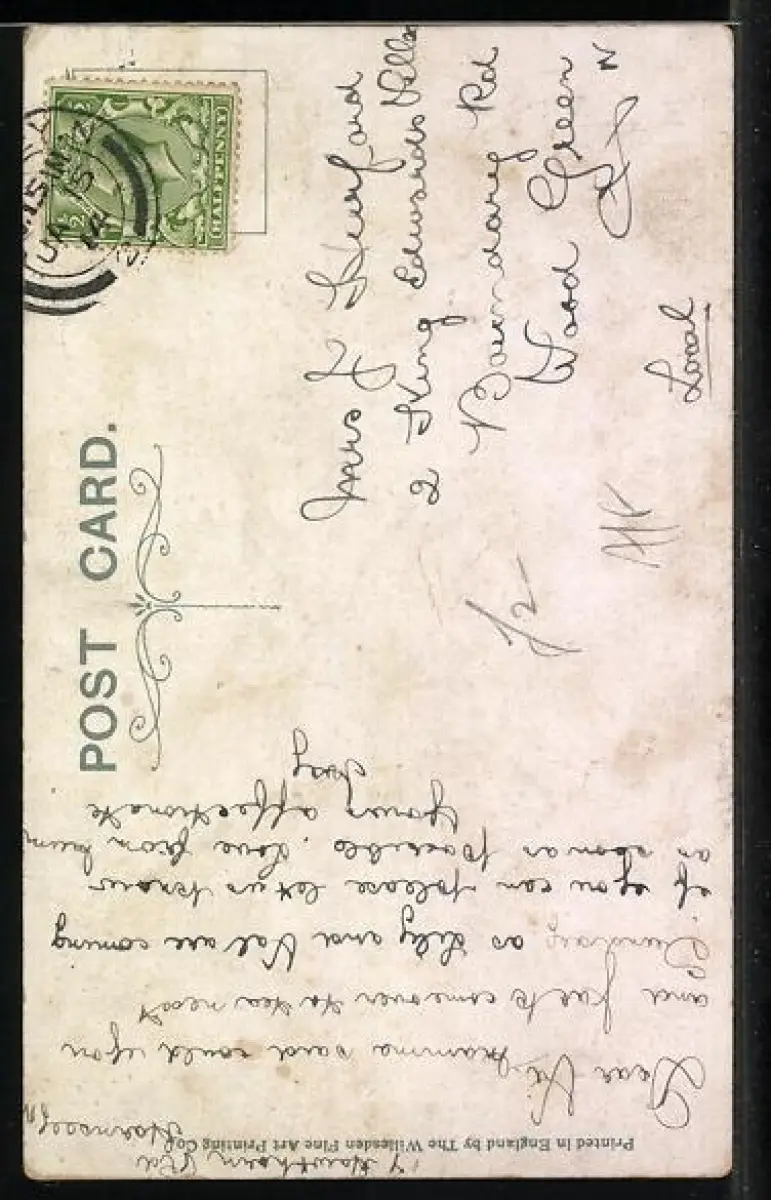 POST CARD.
HALFPENNY
Mrs J Hurford
2 King Edwards Villas
Boundary Rd
Wood Green
N
Local
1/2
7 Hawthorn Rd
Hornsey N
Dear Vi, mamma said could you
and Jack come over to tea next
Sunday as Lily and Val are coming
if you can please let us know
as soon as possible. Love from mum
Yours affectionate
Ivy
Printed in England by The Willesden Fine Art Printing Co.